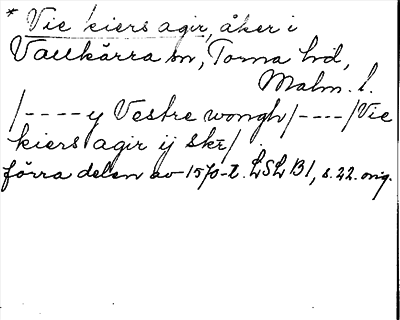 * Vie kiers agir, åker i
Vallkärra sn, Torna hd,
Malm. l.
/---- y Vestre wongh/----/Vie
kiers agir ij ske/
förra delen av 1570-t. LSLB1, s. 22. orig.